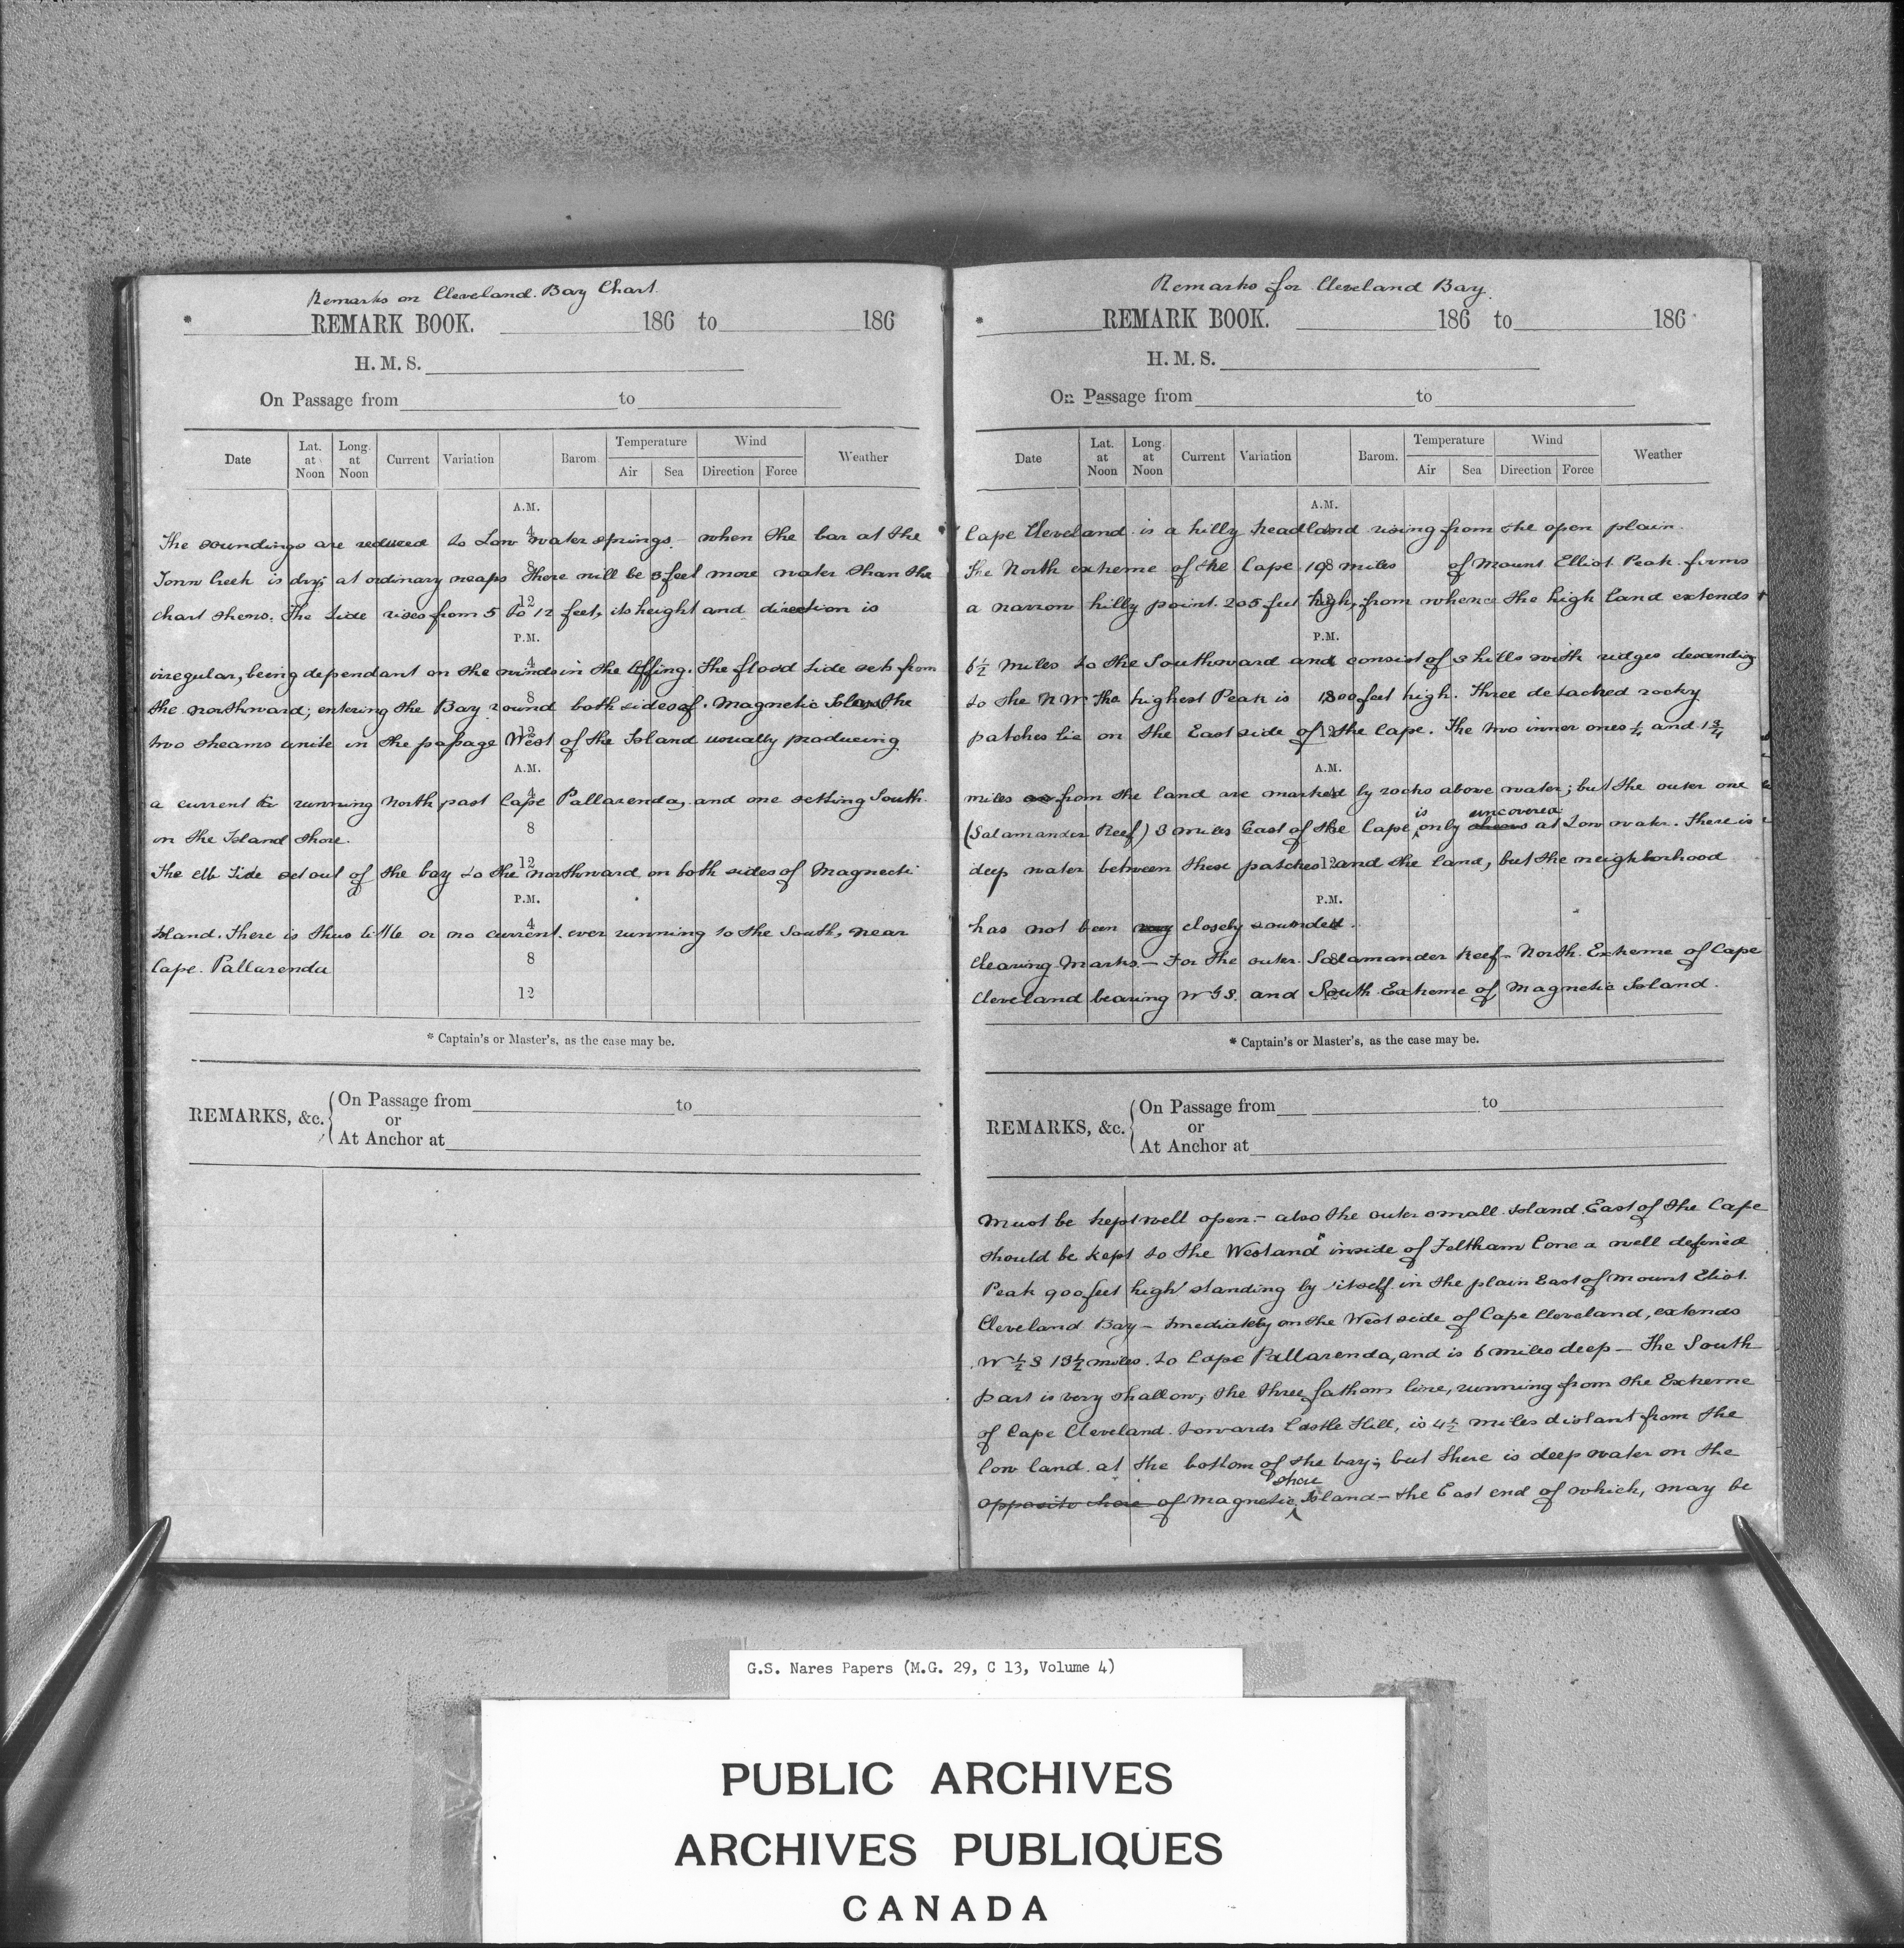 Remarks on Cleveland Bay Chart.
* REMARK BOOK. 186 to 186
H. M. S.
On Passage from to
Date Lat. at Noon Long. at Noon Current Variation Barom. Temperature Air Sea Wind Direction Force Weather
A.M.
The soundings are reduced to Low water springs - when the bar at the
4
Town Creek is dry; at ordinary neaps there will be 3 feet more water than the
8
chart shews. The tide rises from 5 to 12 feet, its height and direction is
12
P.M.
irregular, being dependant on the winds in the offing. The flood tide sets from
4
the northward; entering the Bay round both sides of Magnetic Island the
8
two streams unite in the passage West of the Island usually producing
12
A.M.
a current running North past Cape Pallarenda, and one setting South
4
on the Island shore.
8
The ebb tide set out of the bay to the northward on both sides of Magnecti
12
P.M.
Island. There is thus little or no current ever running to the South, near
4
Cape Pallarenda
8
12
* Captain's or Master's, as the case may be.
REMARKS, &c. On Passage from to
or
At Anchor at
Remarks for Cleveland Bay.
* REMARK BOOK. 186 to 186
H. M. S.
On Passage from to
Date Lat. at Noon Long. at Noon Current Variation Barom. Temperature Air Sea Wind Direction Force Weather
A.M.
Cape Cleveland is a hilly headland rising from the open plain
The North extreme of the Cape miles of Mount Elliot Peak forms
a narrow hilly point 205 feet high, from whence the high land extends
P.M.
6½ miles to the Southward and consist of 3 hills with ridges decending
to the NW. The highest Peak is 1800 feet high. Three detached rocky
patches lie on the East side of the Cape. The two inner ones ¼ and 1¾
A.M.
miles from the land are marked by rocks above water; but the outer one
(Salamander Reef) 3 miles East of the Cape is only uncovered at Low water. There is
deep water between these patches and the land, but the neighborhood
P.M.
has not been very closely sounded.
Clearing Marks - For the outer Salamander Reef - North Extreme of Cape
Cleveland bearing and South Extreme of Magnetic Island
* Captain's or Master's, as the case may be.
REMARKS, &c. On Passage from to
or
At Anchor at
Must be kept well open - also the outer small Island East of the Cape
should be kept to the Westand inside of Feltham Cone a well defined
Peak 900 feet high standing by itself in the plain East of Mount Eliot
Cleveland Bay - Imediately on the West side of Cape Cleveland, extends
W ½ S 13½ miles to Cape Pallarenda, and is 6 miles deep - The South
part is very shallow, the three fathom line, running from the Extreme
of Cape Cleveland towards Castle Hill, is 4½ miles distant from the
low land at the bottom of the bay; but there is deep water on the
opposite shore of Magnetic shore Island - the East end of which, may be
G.S. Nares Papers (M.G. 29, C 13, Volume 4)
PUBLIC ARCHIVES
ARCHIVES PUBLIQUES
CANADA